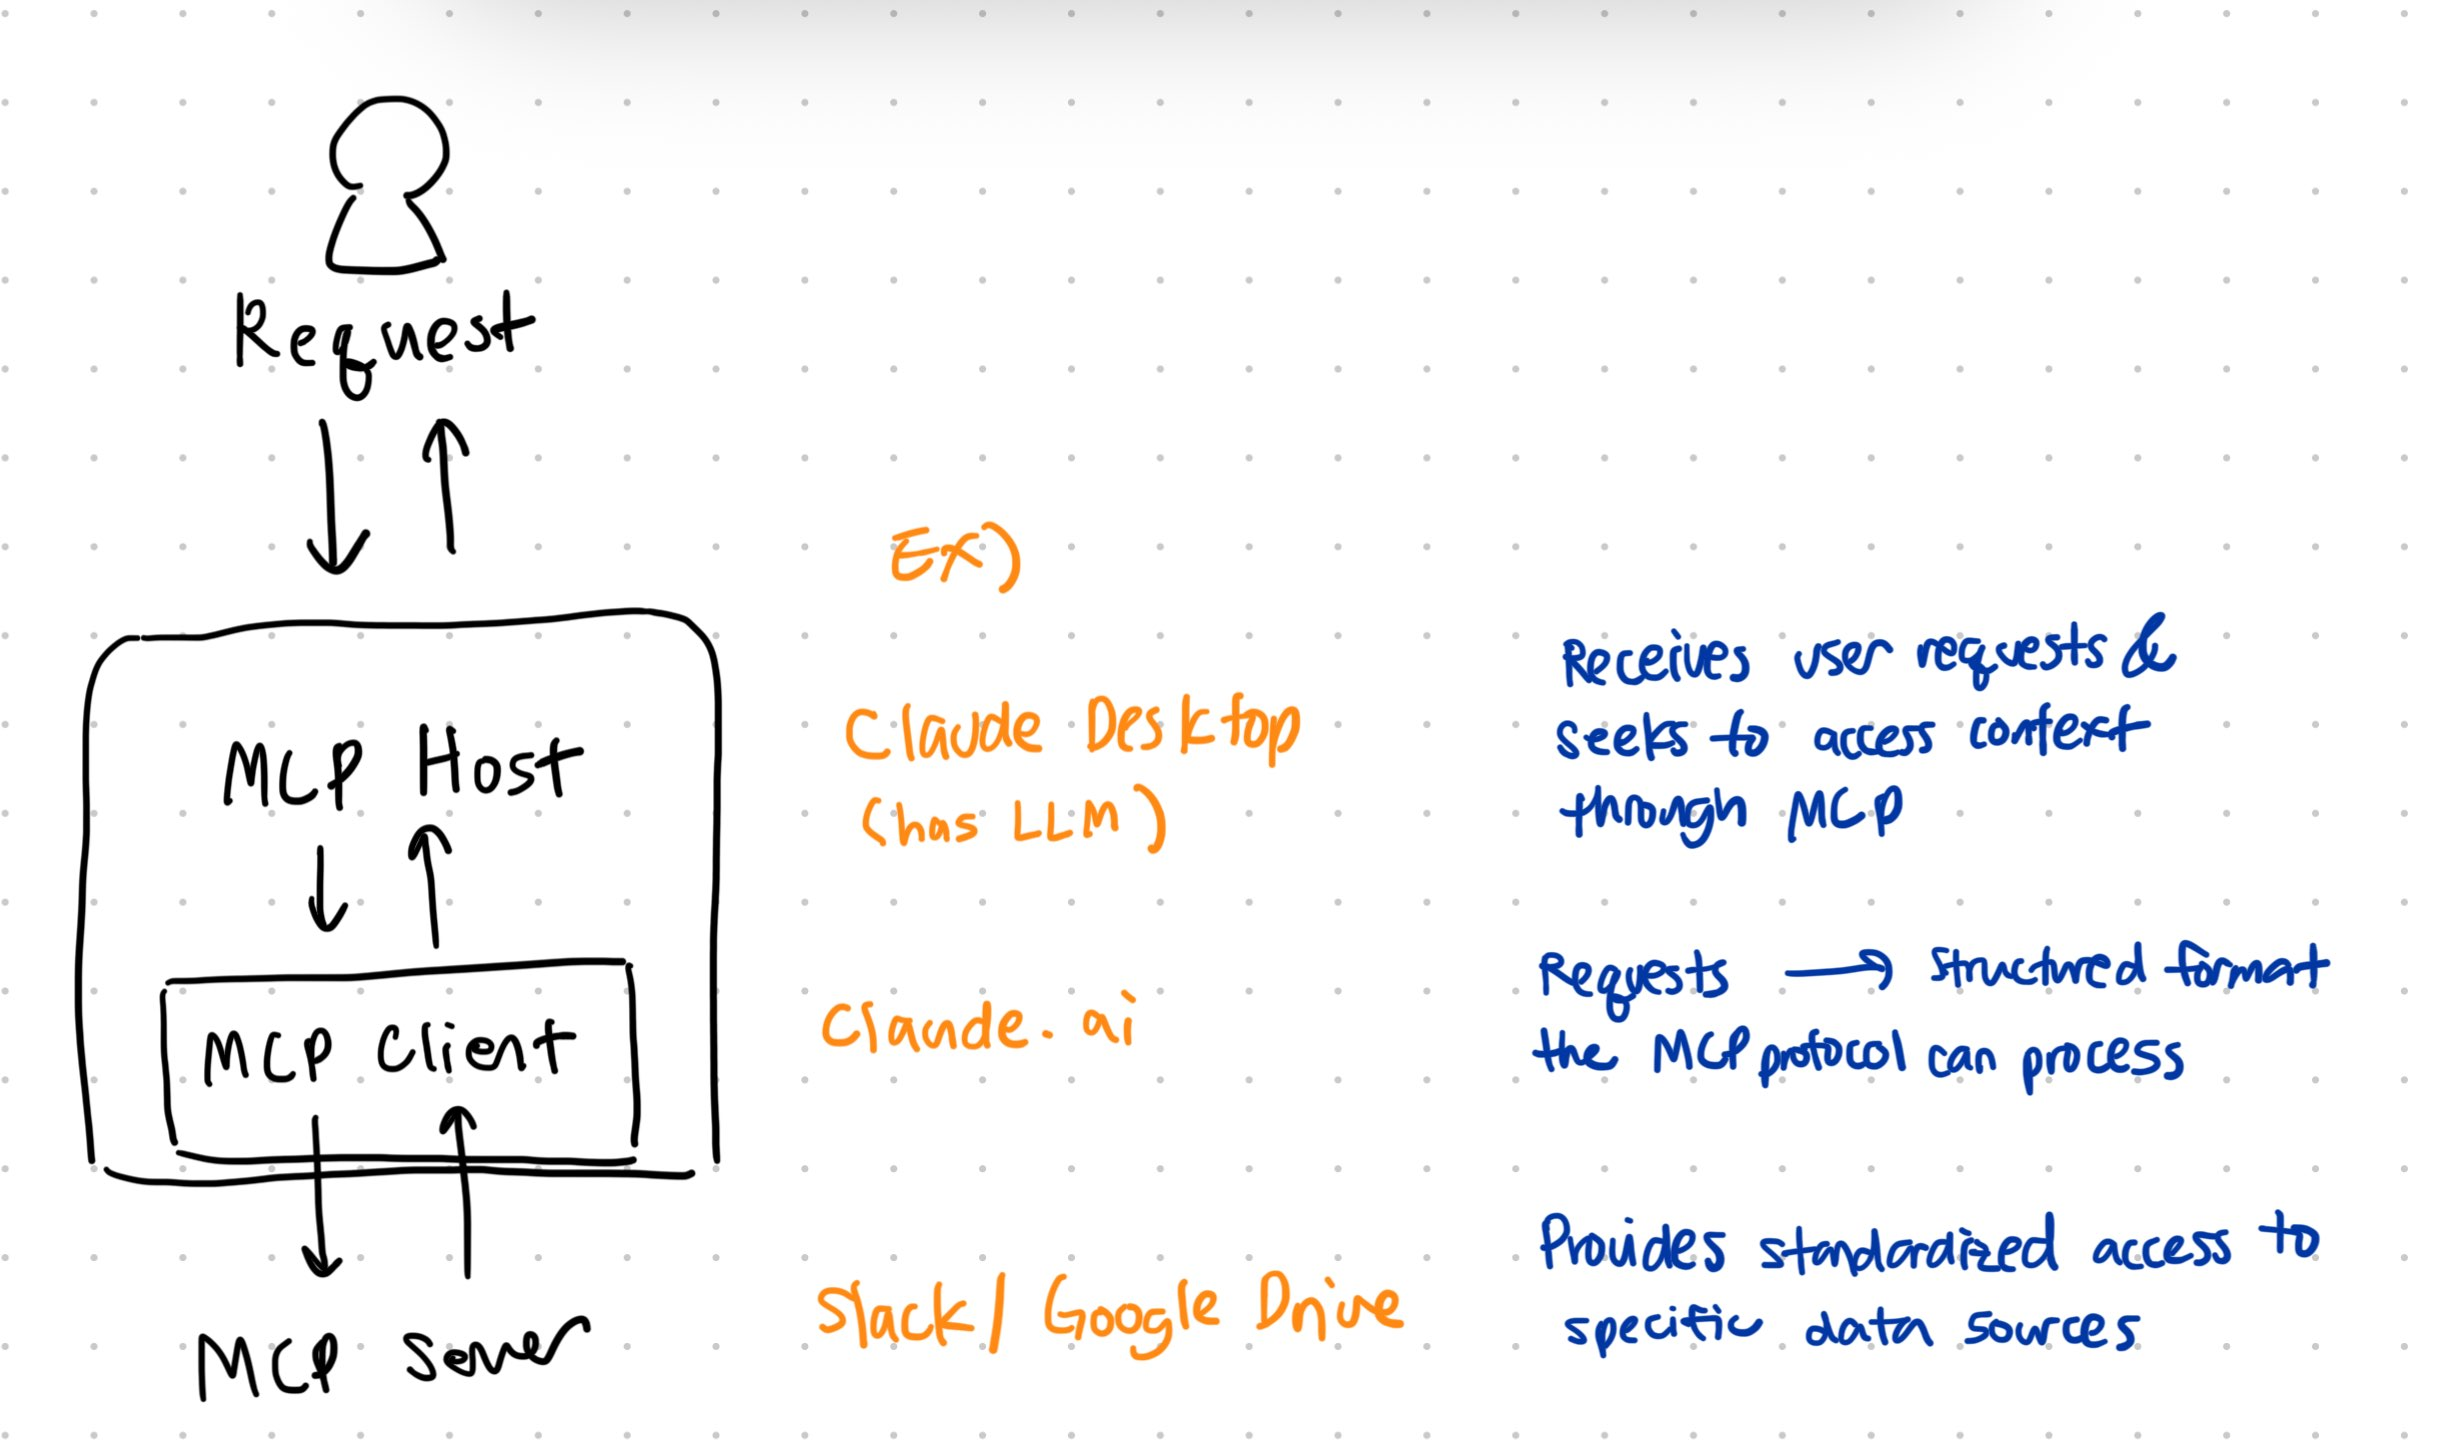 Request
Ex)
MCP Host
Claude Desktop
(has LLM)
Receives user requests &
seeks to access context
through MCP
MCP Client
Claude.ai
Requests → structured format
the MCP protocol can process
MCP Server
Slack / Google Drive
Provides standardized access to
specific data sources